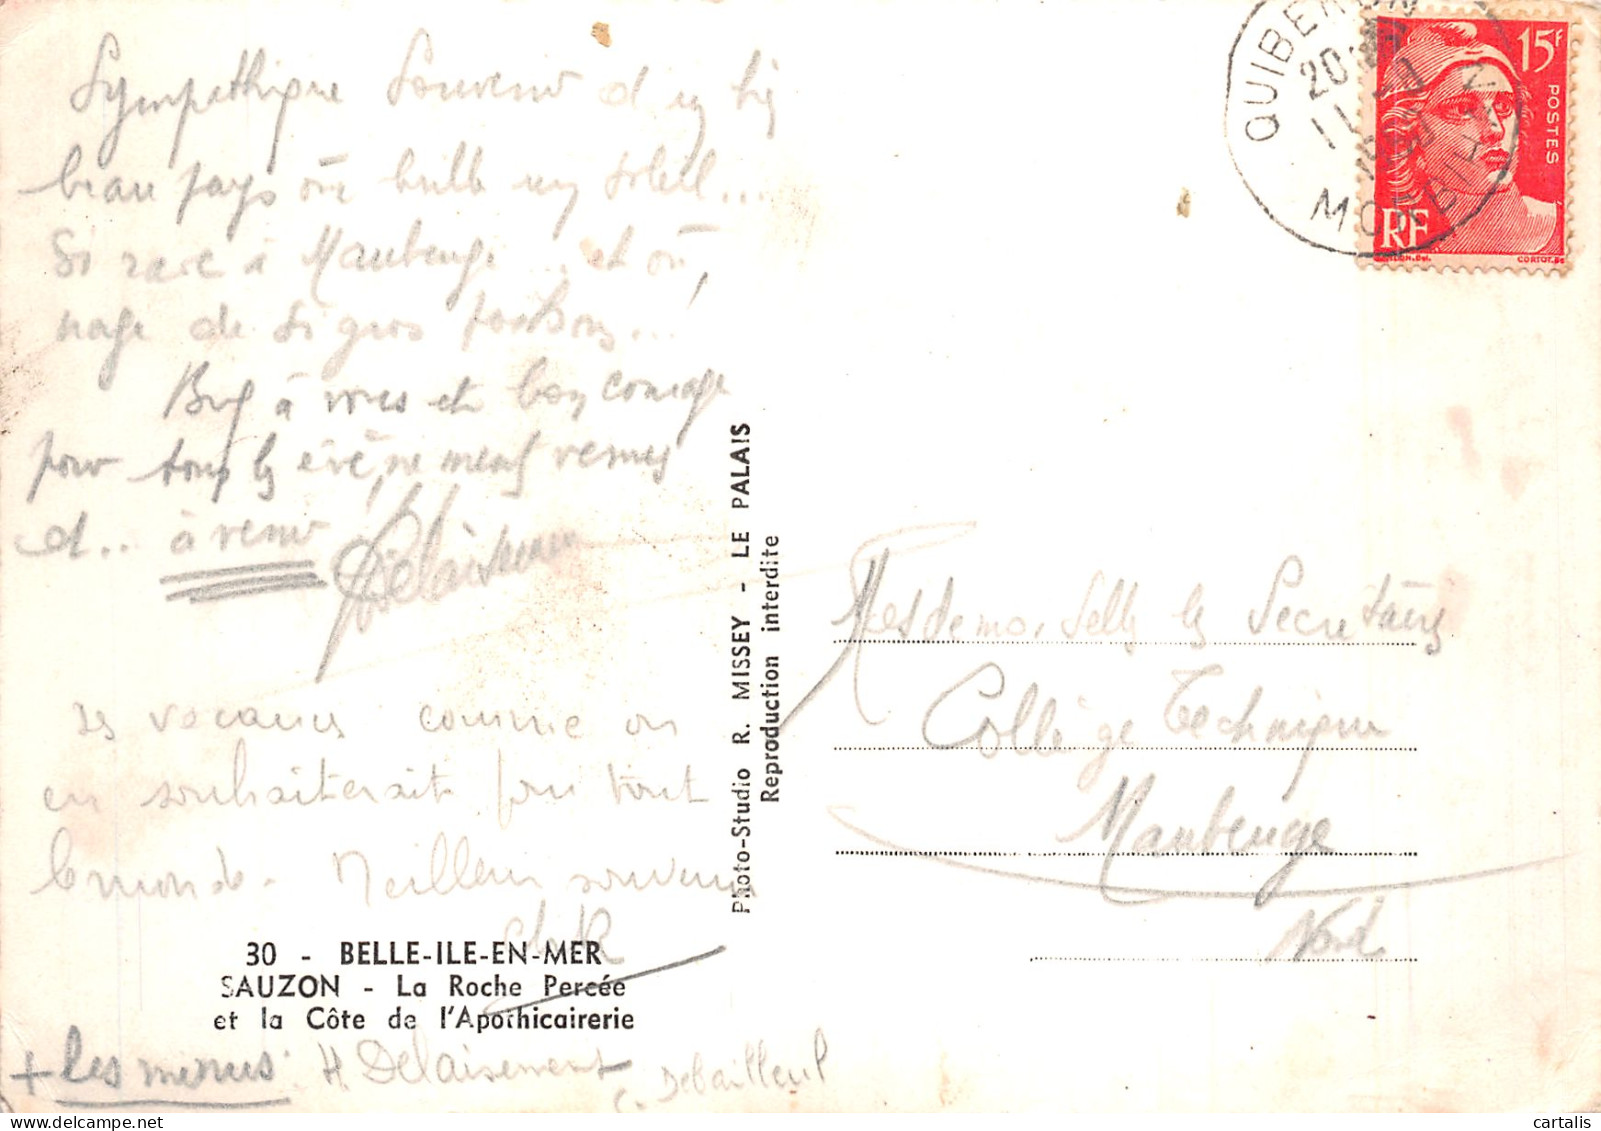 Sympathique Souvenir d'un si
beau pays où brille un soleil...
Si rare à Maubeuge... et où,
nage de si gros poissons...
Bref à vous et bon courage
pour tous les évènements venus
et.. à venir
Delaisement
Des vacances comme on
en souhaiterait pour tout
le monde. Meilleurs souvenirs
30 - BELLE-ILE-EN-MER
SAUZON - La Roche Percée
et la Côte de l'Apothicairerie
+ les minus: H Delaisement
C. Debailleul
Photo-Studio R. MISSEY - LE PALAIS
Reproduction interdite
QUIBERON
20
11
MORBIHAN
15F
POSTES
RF
CORTOT. Sc
Mesdemoiselles les Secrétaires
Collège Technique
Maubeuge
Nord
cartalis delcampe.net